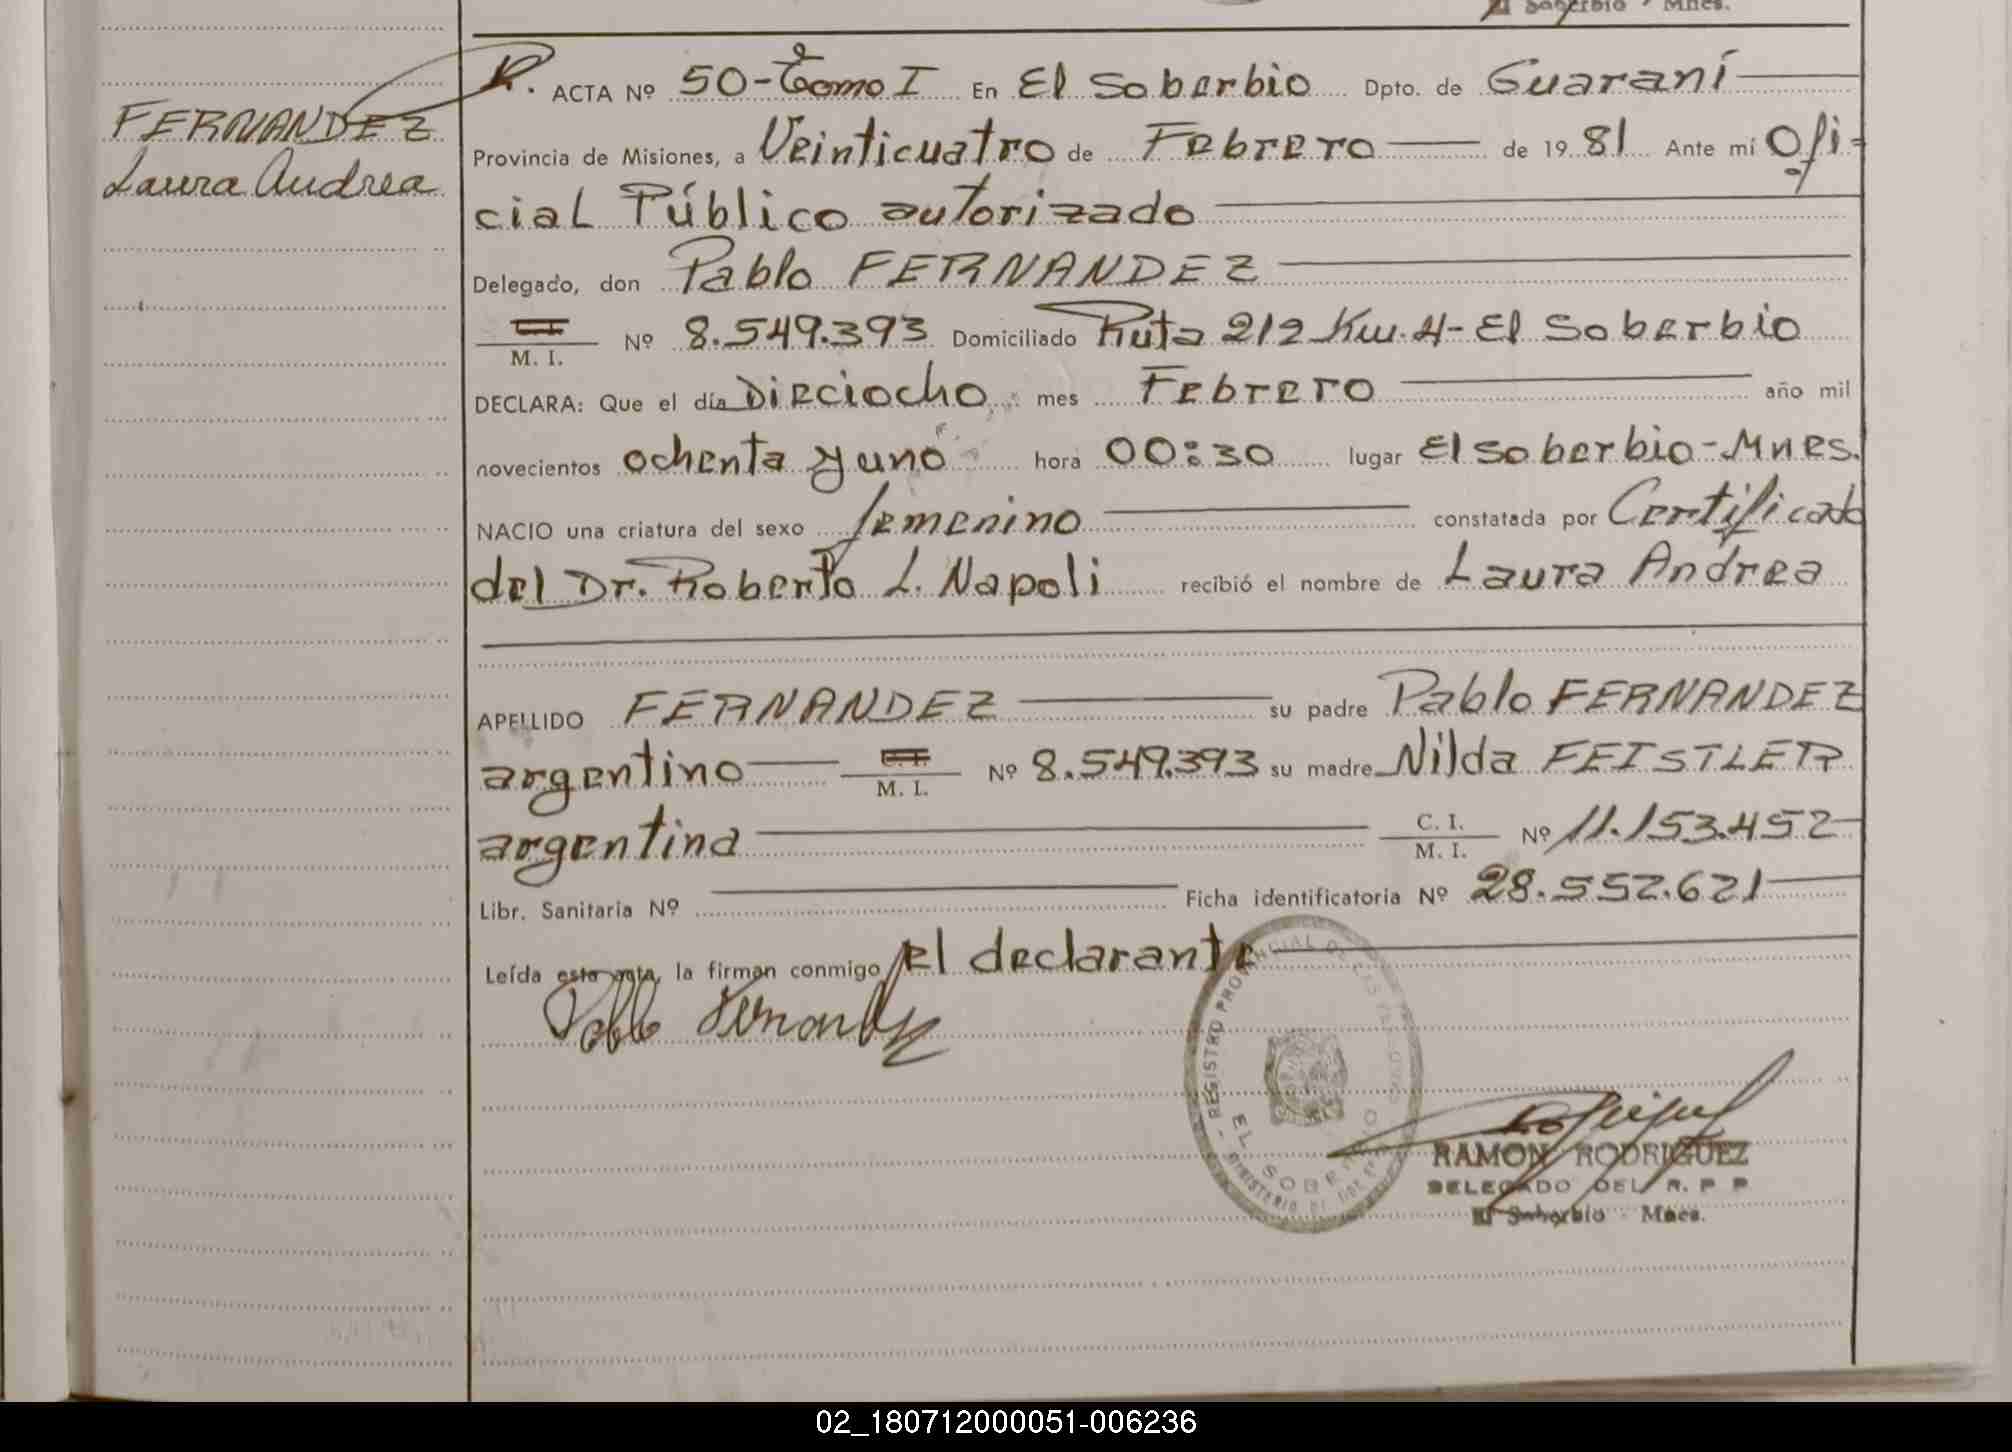 El Soberbio - Mnes.
FERNANDEZ
Laura Andrea
R. ACTA Nº 50-Tomo I En El Soberbio Dpto. de Guaraní
Provincia de Misiones, a Veinticuatro de Febrero de 1981 Ante mí Ofi-
cial Público autorizado
Delegado, don Pablo FERNANDEZ
M. I. Nº 8.549.393 Domiciliado Ruta 212 Km. 4- El Soberbio
DECLARA: Que el día Dieciocho mes Febrero año mil
novecientos ochenta y uno hora 00:30 lugar El Soberbio-Mnes.
NACIO una criatura del sexo femenino constatada por Certificado
del Dr. Roberto L. Napoli recibió el nombre de Laura Andrea
APELLIDO FERNANDEZ su padre Pablo FERNANDEZ
argentino M. I. Nº 8.549.393 su madre Nilda FEISTLER
argentina C. I. M. I. Nº 11.153.452
Libr. Sanitaria Nº Ficha identificatoria Nº 28.552.621
Leída esta acta, la firman conmigo el declarante
Pablo Fernandez
REGISTRO PROVINCIAL DE LAS PERSONAS
EL SOBERBIO
RAMON RODRIGUEZ
DELEGADO DEL R. P. P.
El Soberbio - Mnes.
02_180712000051-006236